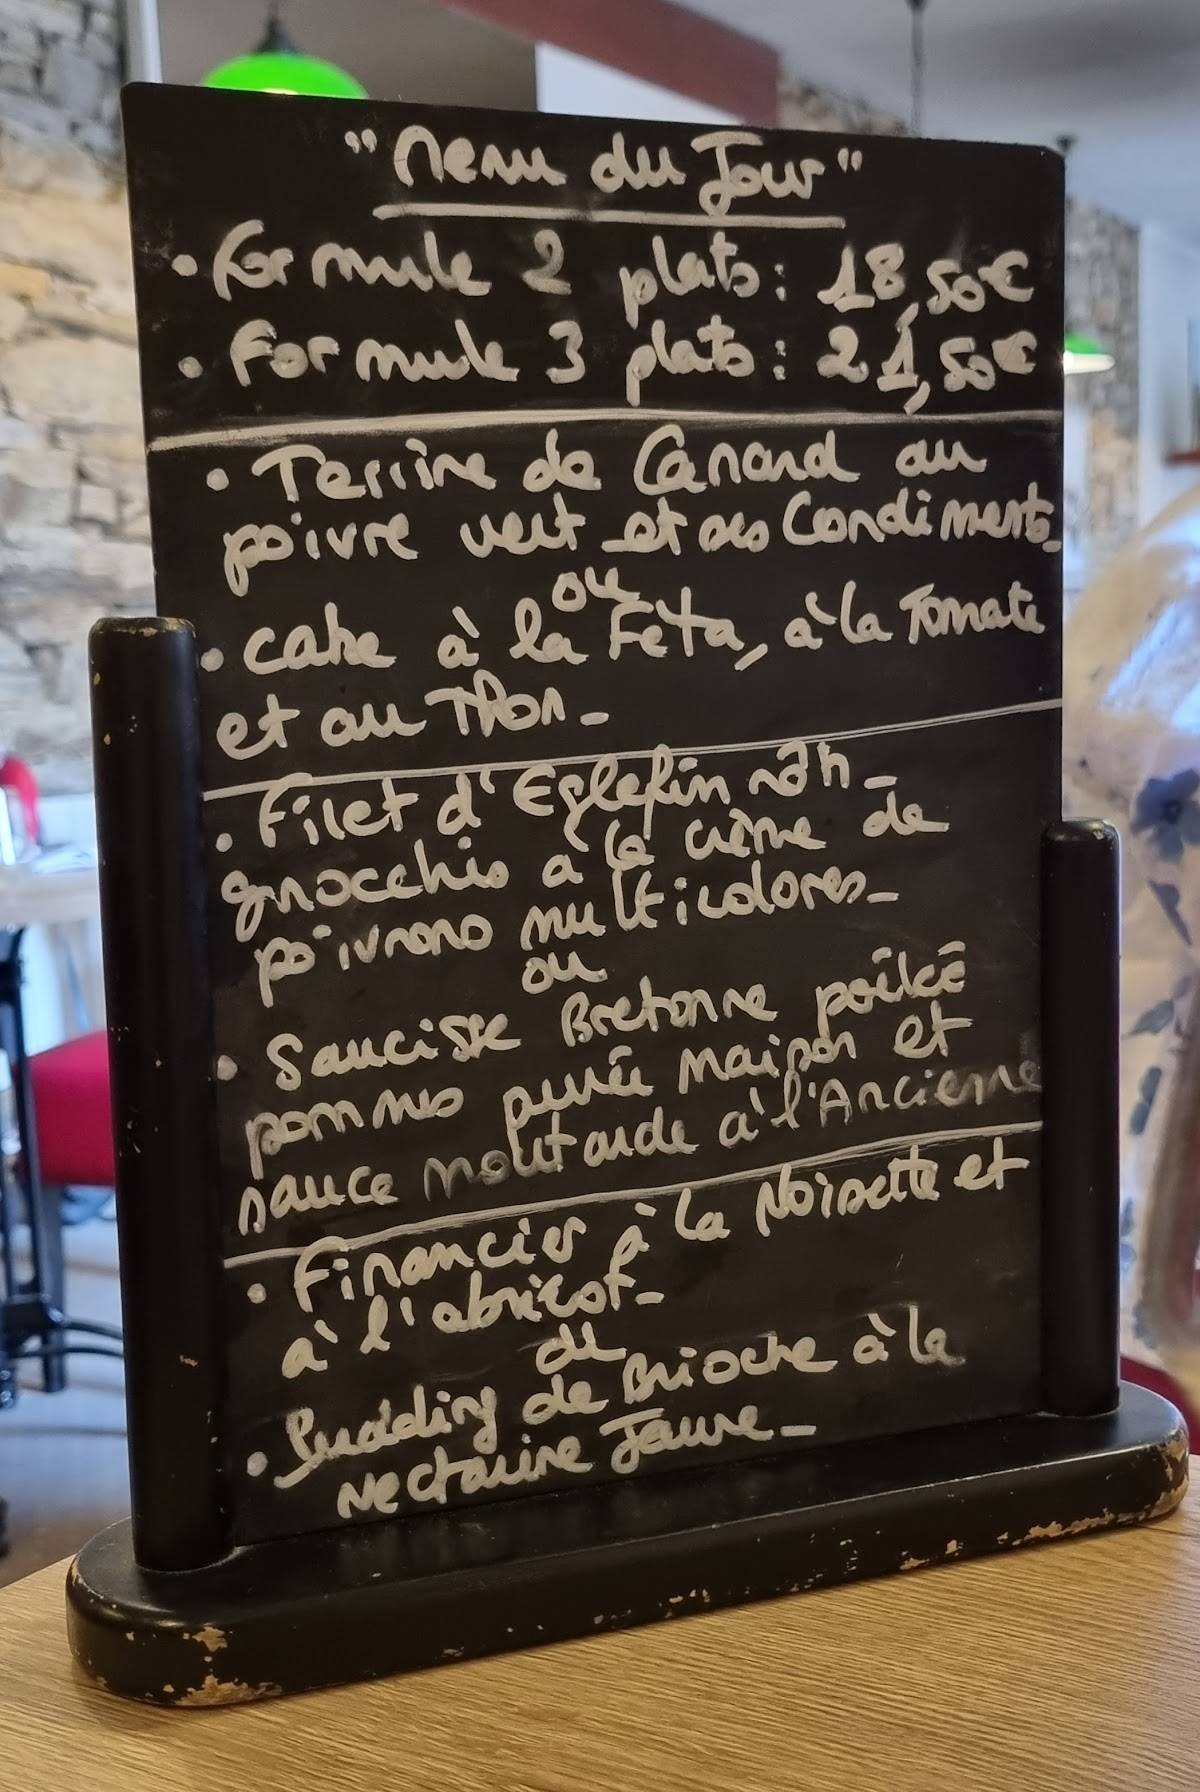 "Menu du Jour"
• Formule 2 plats : 18,50€
• Formule 3 plats : 21,50€
• Terrine de Canard au
poivre vert et ses Condiments_
ou
• cake à la Feta, à la Tomate
et au Thon_
• Filet d'Eglefin rôti_
gnocchis à la crème de
poivrons multicolores_
ou
• Saucisse Bretonne poêlée
pommes purée Maison et
sauce moutarde à l'Ancienne
• Financier à la Noisette et
à l'abricot_
ou
• Pudding de Brioche à la
Nectarine Jaune_